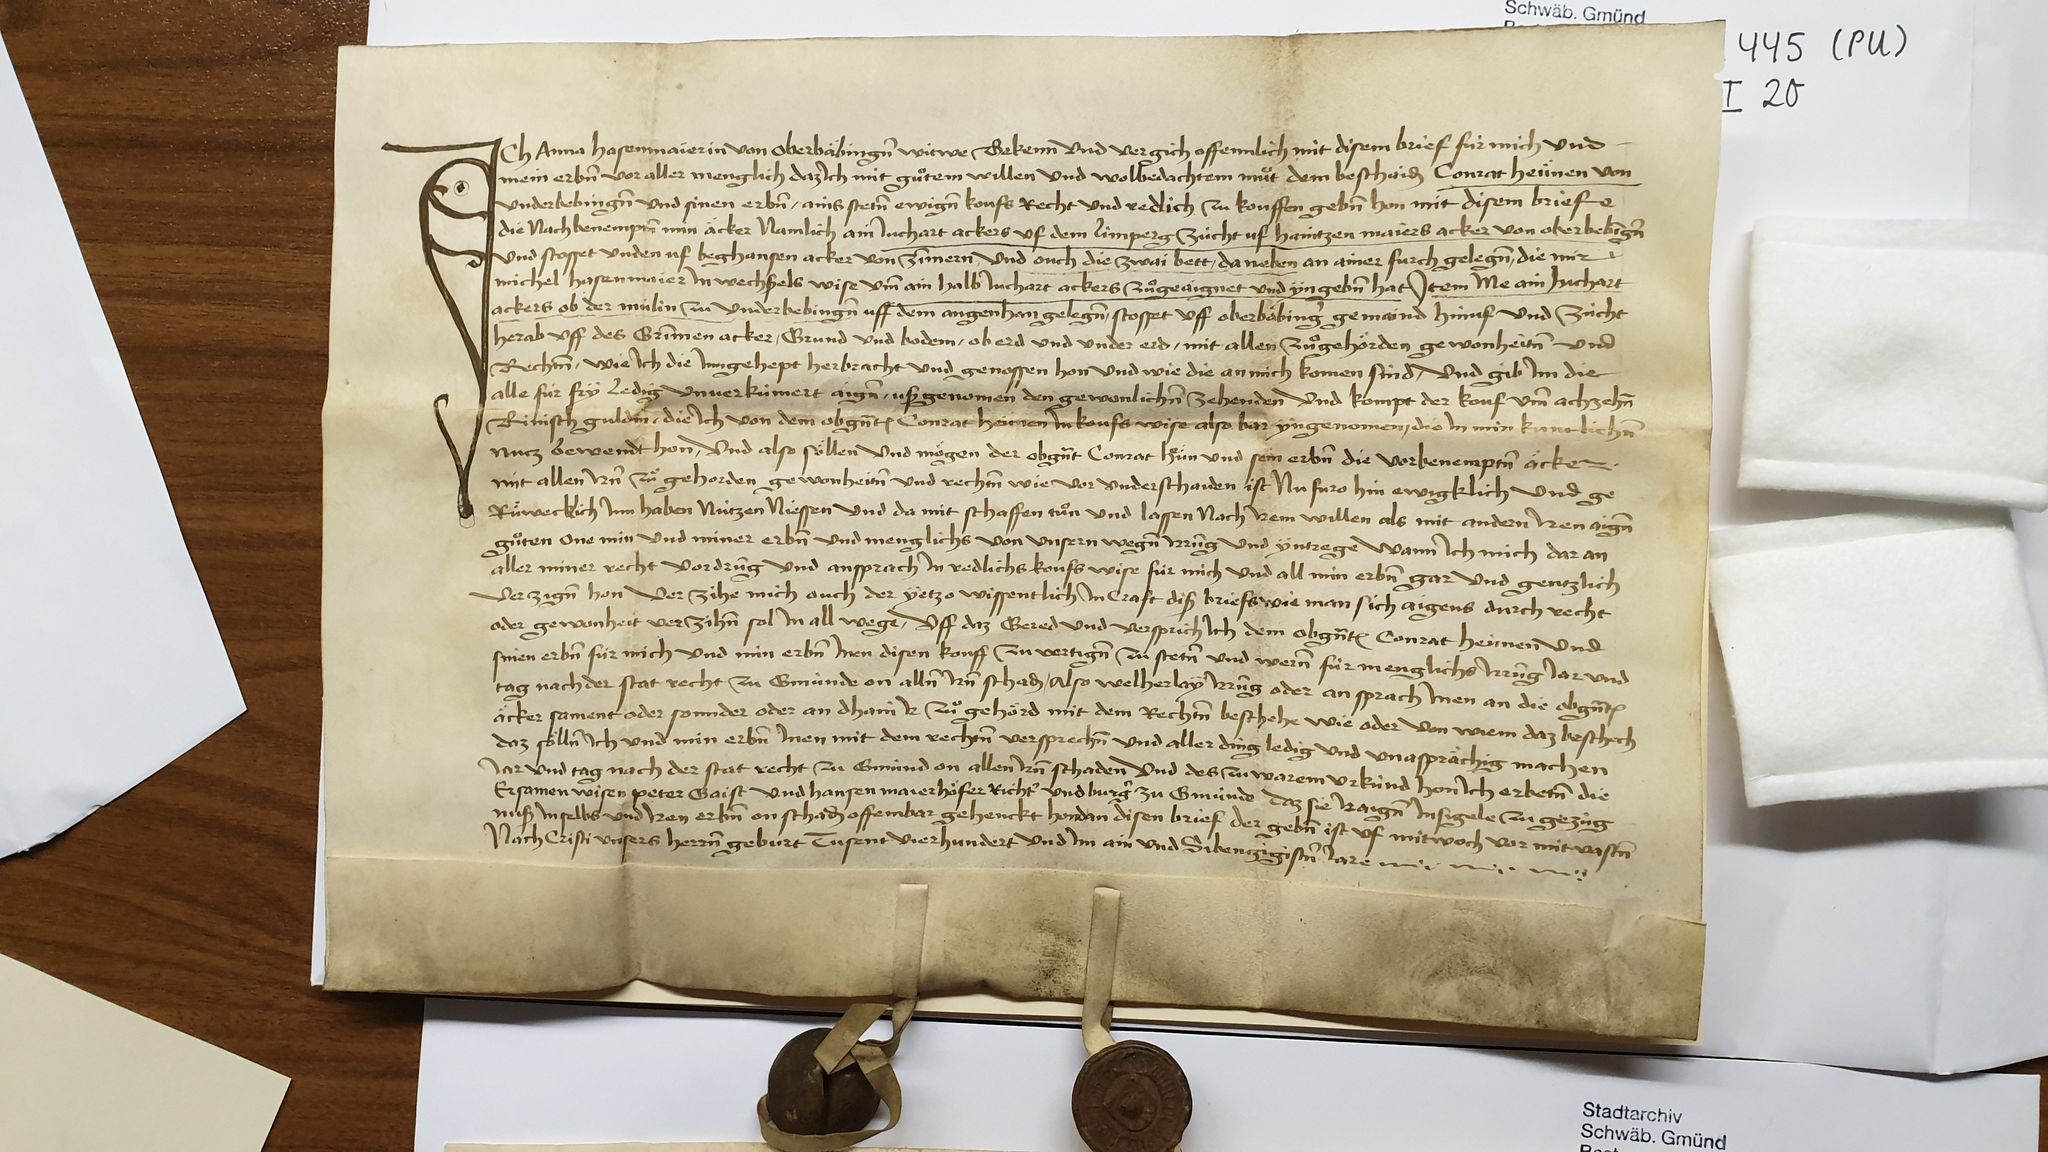 Schwäb. Gmünd
445 (PU)
I 20
Ich Anna hasenmaierin von Oberbäbingn̄ witwe Bekenn vnd vergich offennlich mit disem brief für mich vnd
mein erbn̄ vor aller menglich daz Ich mit gůtem willen vnd wolbedachtem můt dem beschaidn̄ Conrat heinen von
vnderbebingn̄ vnd sinen erbn̄ / ains stetn̄ ewign̄ koufs Recht vnd redlich zu kouffen gebn̄ hon mit disem briefe
die Nachbenemptn̄ min äcker Namlich ain Juchart ackers vf dem limperg zücht uf haintzen maiers acker von oberbebīgn̄
vnd stosset vnden uf beghansen acker von zim̄ern vnd ouch die zwai bett / da neben an ainer furch gelegn̄ / die mir
michel hasenmaier In wechsels wise vm̄ ain halb Juchart ackers zůgeaignet vnd yngebn̄ hat Item Me ain Juchart
ackers ob der mülin zu vnderbebingn̄ uff dem angenhan gelegn̄ / stosset vff oberbäbinger gemaind hinuf vnd zücht
herab vff des Grim̄en acker / Grund vnd bodem / ob erd vnd vnder erd / mit allen zůgehörden gewonheitn̄ vnd
Rechtn̄ / wie Ich die Inngehept herbracht vnd genossen hon vnd wie die an mich komen sind / Vnd gib Im die
alle für fry ledig vnuerkümert aign̄ / ußgenomen den gewonlichn̄ zehenden Vnd kompt der kouf vm̄ achzehn̄
Rinisch guldin / die Ich von dem obgn̄tn̄ Conrat heinen In koufs wise also bar yngenomen / die In min kuntlichn̄
nucz bewendt hon / Vnd also söllen vnd mögen der obgn̄t Conrat hün vnd sein erbn̄ die vorbenemptn̄ äcker
mit allen Irn̄ zů gehorden gewonheitn̄ vnd rechtn̄ wie vor vnderschaiden ist Nu furo hin ewigklich vnd ge
Rüweclich Inn haben Nützen Niessen vnd da mit schaffen tůn vnd lassen Nach Irem willen als mit andern Iren aign̄
gůten One min vnd miner erbn̄ vnd menglichs von vnsern wegn̄ Irrūg vnd yntrege Wann Ich mich dar an
aller miner recht vordrūg vnd ansprach In redlichs koufs wise für mich vnd all min erbn̄ gar vnd gentzlich
verzign̄ hon Verzihe mich ouch der yetzo wissentlich In Craft diß briefs wie man sich aigens durch recht
oder gewonheit verzihn̄ sol In all wege / Vff daz Gered vnd versprich Ich dem obgn̄tn̄ Conrat heinen Vnd
sinen erbn̄ für mich vnd min erbn̄ Inen disen kouff zu vertign̄ zu stetn̄ vnd wern̄ für menglichs Irrūg Iar vnd
tag nach der stat recht zu Gmünde on alln̄ Irn̄ schadn̄ / Also welherlay Irrūg oder ansprach Inen an die obgn̄tn̄
äcker sament oder sonnder oder an dhain Ir zů gehörd mit dem Rechtn̄ beschehe wie oder von wiem daz beschech
daz sölln̄ Ich vnd min erbn̄ Inen mit dem rechtn̄ versprechn̄ vnd aller ding ledig vnd vnasprächig machen
Iar vnd tag nach der stat recht zu Gmünd on allen Irn̄ schaden Vnd des zu warem vrkünd hon Ich erbetn̄ die
Ersamen wisen peter Gaist vnd hansen maierhöfer Richter vnd burger zu Gmünde daz sie Ir aign̄ Insigele zu gezüg
nuß In selbs vnd Iren erbn̄ on schadn̄ offembar gehenckt hond an disen brief der gebn̄ ist vf mitwoch vor mitvastn̄
Nach Cristi vnsers herrn̄ geburt Tusent vierhundert vnd Im ain vnd Sibenzigistn̄ Iare
Stadtarchiv
Schwäb. Gmünd